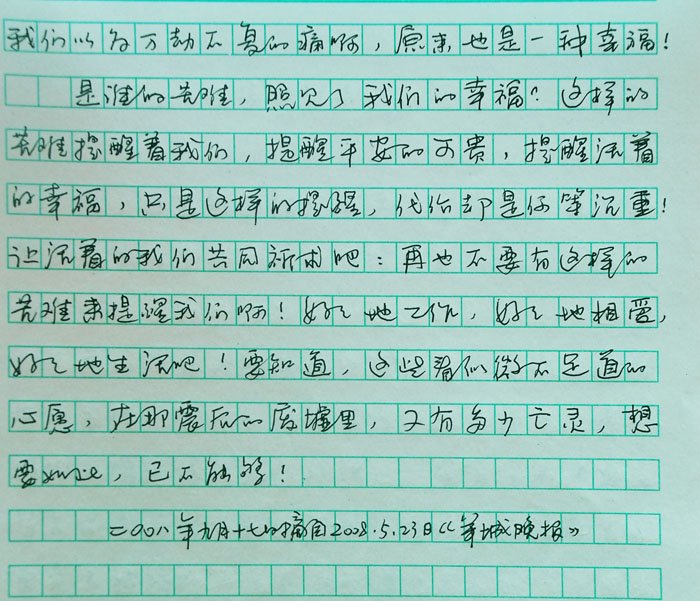 我们以为万劫不复的痛啊，原来也是一种幸福！
是谁的苦难，照见了我们的幸福？这样的
苦难提醒着我们，提醒平安的可贵，提醒活着
的幸福，只是这样的提醒，代价却是何等沉重！
让活着的我们共同祈求吧：再也不要有这样的
苦难来提醒我们啊！好好地工作，好好地相爱，
好好地生活吧！要知道，这些看似微不足道的
心愿，在那震后的废墟里，又有多少亡灵，想
要如此，已不能够！
二〇〇八年九月十七日摘自2008.5.23日《羊城晚报》